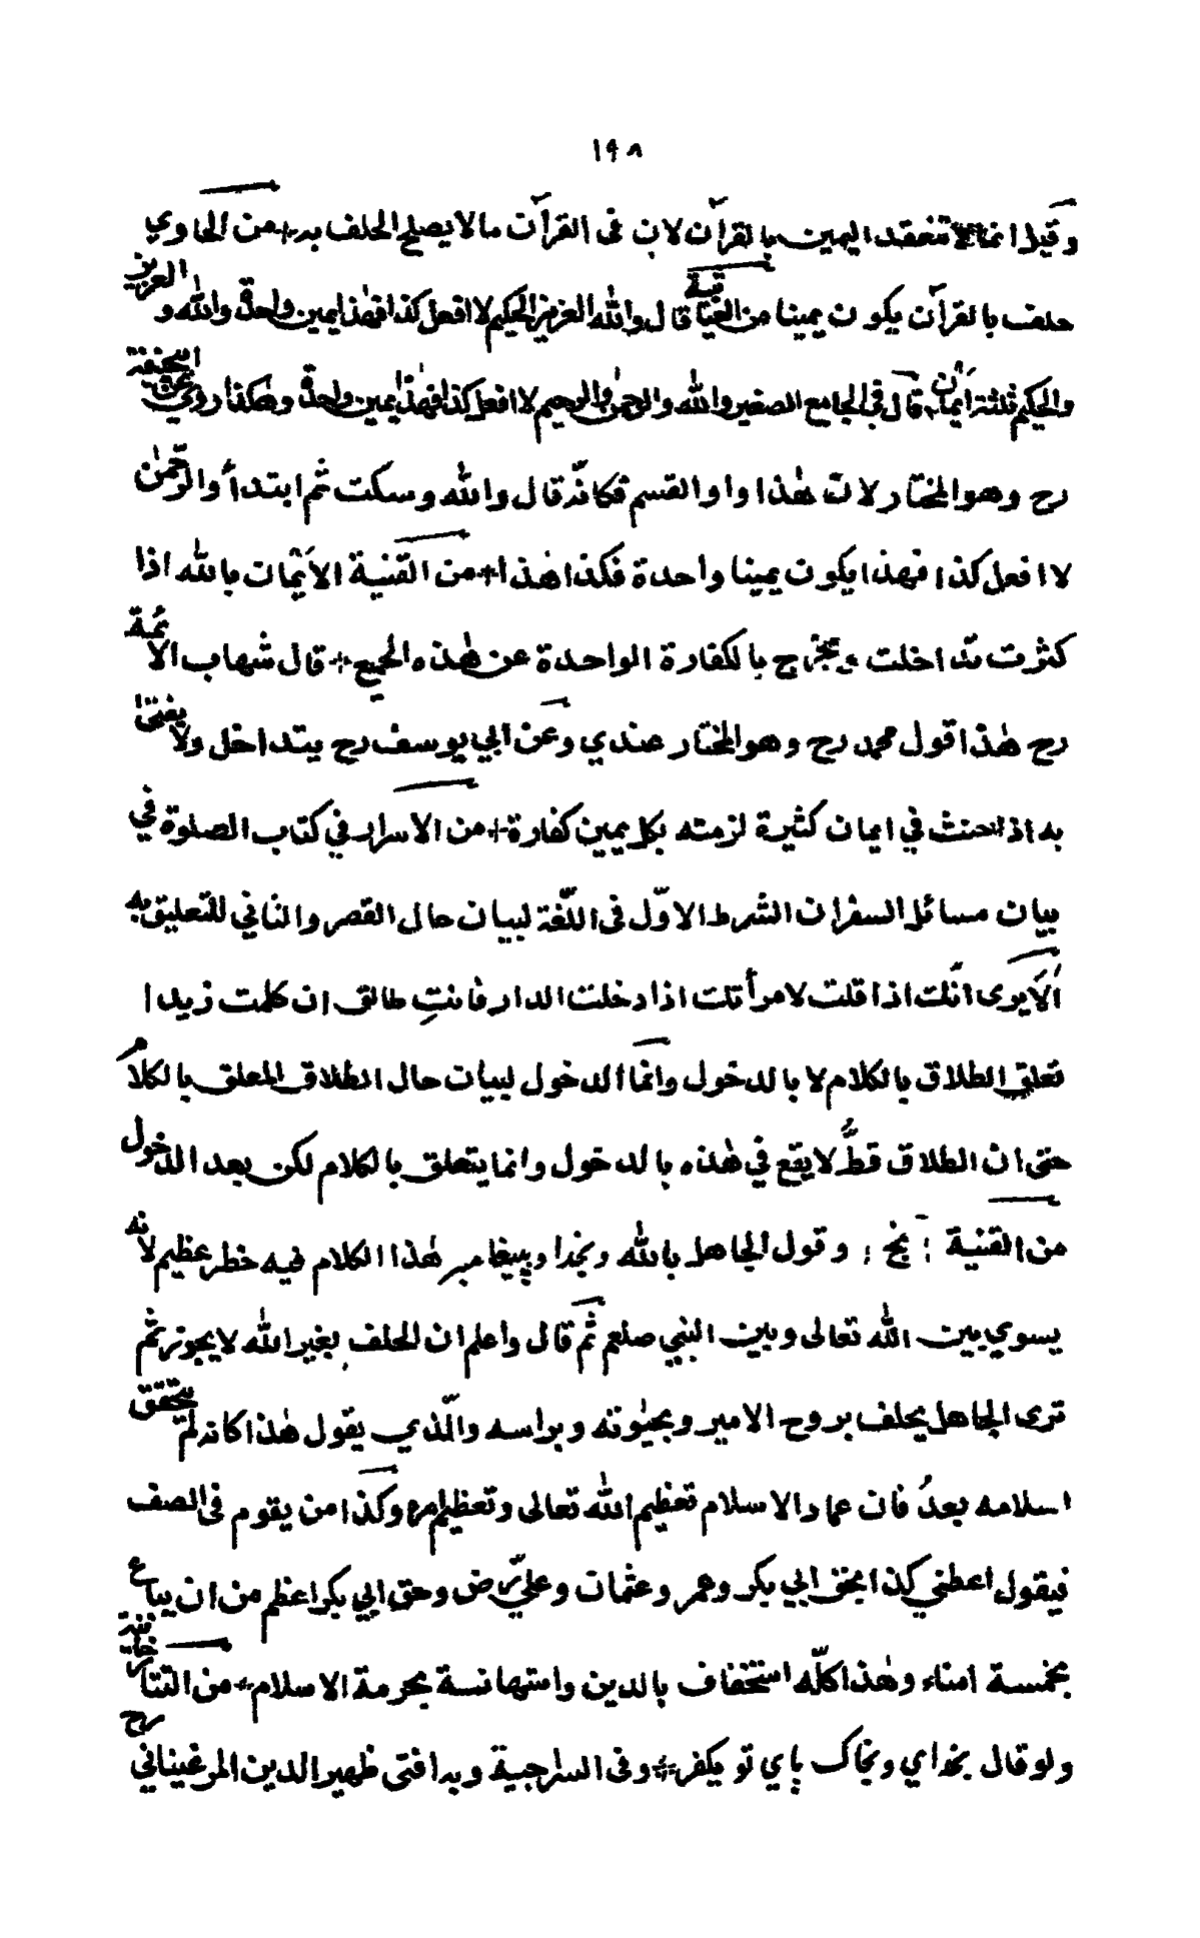 ١٩٨
وقيل انما لا تنعقد اليمين بالقرآن لان فى القرآن ما لا يصلح الحلف به * من الحاوي
حلف بالقرآن يكون يمينا من الغياثية قال والله العزيز الحكيم لا افعل كذا فهذا يمين واحدة والله و العزيز
والحكيم ثلثة أيمان قال فى الجامع الصغير والله والرحمٰن والرحيم لا افعل كذا فهٰذا يمين واحدة وهكذا روي عن ابيحنيفة
رح وهو المختار لان هٰذا واو القسم فكانّه قال والله وسكت ثم ابتدأ والرّحمٰن
لا افعل كذا فهذا يكون يمينا واحدة فكذا هٰذا * من القنية الأيمان بالله اذا
كثرت تداخلت ويخرج بالكفارة الواحدة عن هٰذه الجميع * قال شهاب الائمة
رح هٰذا قول محمد رح وهو المختار عندي وعن ابي يوسف رح يتداخل ولا يفتى
به اذا حنث في ايمان كثيرة لزمته بكل يمين كفارة * من الاسرار في كتاب الصلوة في
بيان مسائل السفر ان الشرط الاوّل فى اللّغة لبيان حال القصر والثاني للتعليق به
ألا يرى انّك اذا قلت لامرأتك اذا دخلت الدار فانتِ طالق ان كلمت زيدا
تعلق الطلاق بالكلام لا بالدخول وانما الدخول لبيان حال الطلاق المعلق بالكلام
حتى ان الطلاق قطُّ لا يقع في هٰذه بالدخول وانما يتعلق بالكلام لكن بعد الدخول
من القنية : بخ : وقول الجاهل بالله وبخدا وپيغامبر هٰذا الكلام فيه خطر عظيم لانه
يسوي بين الله تعالى وبين النبي صلعم ثم قال واعلم ان الحلف بغير الله لا يجوز ثم
ترى الجاهل يحلف بروح الامير وبحيٰوته وبراسه والّذي يقول هٰذا كانه لم يتحقق
اسلامه بعدُ فان عماد الاسلام تعظيم الله تعالى وتعظيم امره وكذا من يقوم فى الصف
فيقول اعطني كذا بحق ابي بكر وعمر وعثمان وعليّ رض وحق ابي بكر اعظم من ان يباع
بخمسة امناء وهٰذا كلّه استخفاف بالدين واستهانسة بحرمة الاسلام * من التتارخانية
ولو قال بخداي وبخاك پاي تو يكفر * وفى السراجية وبه افتى ظهير الدين المرغيناني رح